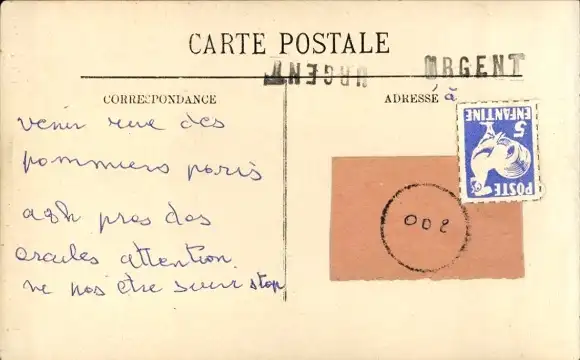 CARTE POSTALE
URGENT
URGENT
CORRESPONDANCE
ADRESSÉ à
venir rue des
pommiers paris
agh pres des
ecoules attention
ne pas être suivi stop
5
POSTE ENFANTINE
002